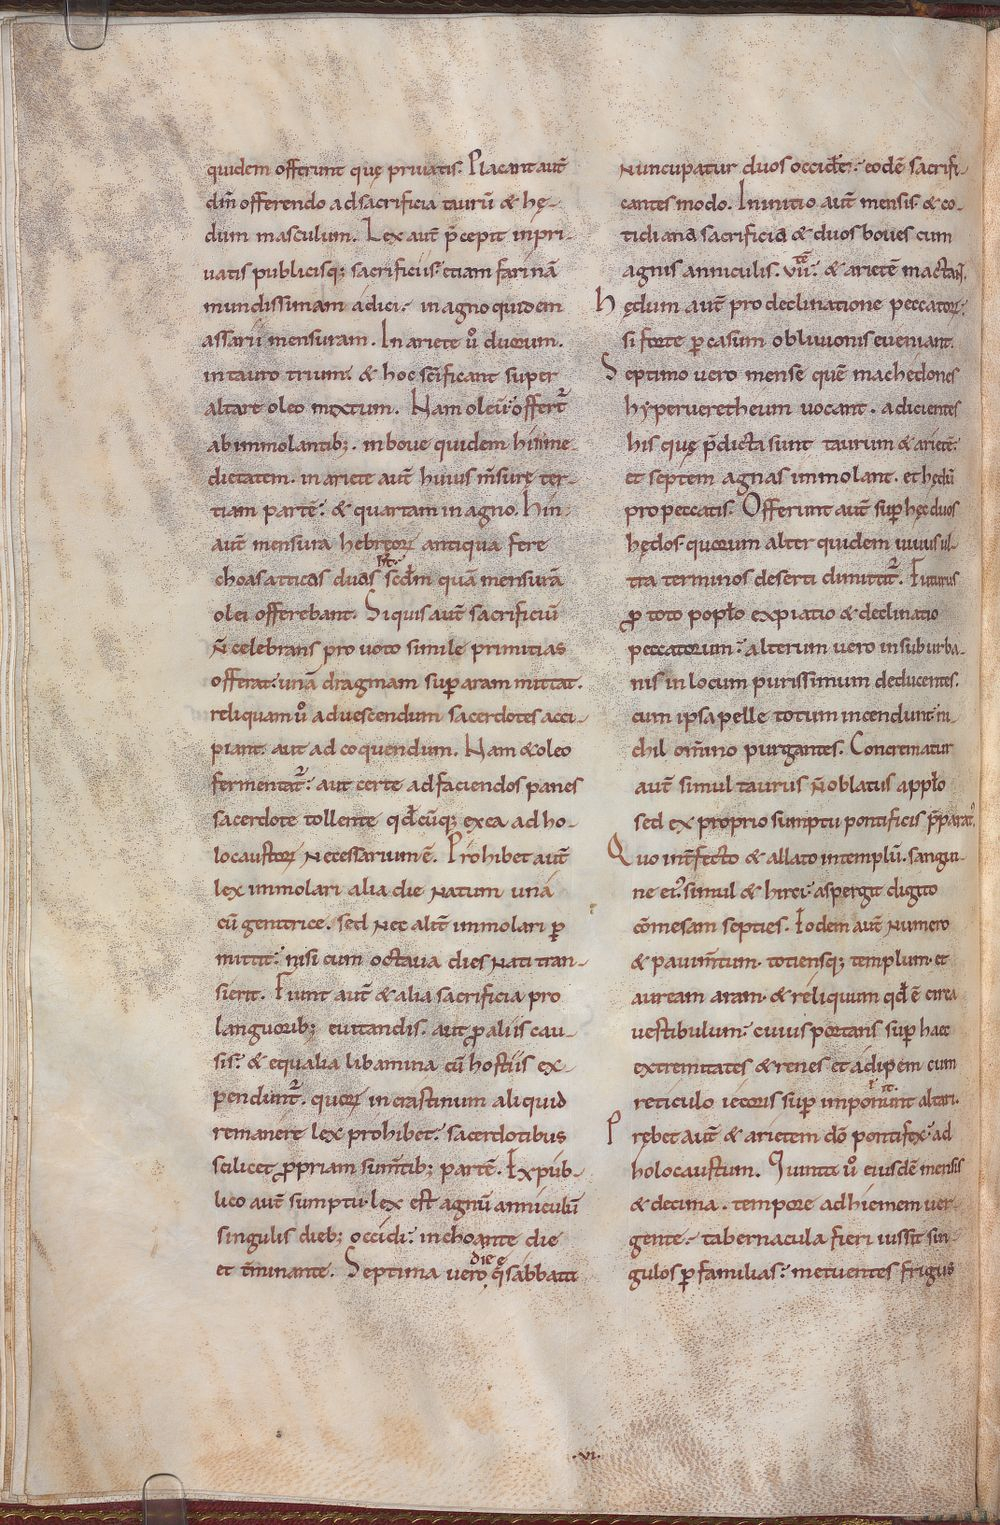 quidem offerunt quę priuatis. Placant aut̄
dm̄ offerendo ad sacrificia taurū & hę-
dum masculum. Lex aut̄ p̄cepit in pri-
uatis publicisq; sacrificiis: etiam farinā
mundissimam adici: in agno quidem
assarii mensuram. In ariete ů duorum.
in tauro trium: & hoc sc̄ificant super
altare oleo mixtum. Nam oleū offert᷑
ab immolantib; in boue quidem hin me-
dietatem. in ariete aut̄ huius m̄surę ter-
tiam partē: & quartam in agno. hin
aut̄ mensura hebreoꝝ antiqua fere
choas atticas duas scd̄m quā mensurā
olei offerebant. Si quis aut̄ sacrificiū
n̄ celebrans pro uoto simile primitias
offerat: unā dragmam suꝑ aram mittat.
reliquam ů ad uescendum sacerdotes acci-
piant: aut ad coquendum. Nam & oleo
fermentat᷑: aut certe ad faciendos panes
sacerdote tollente qd̄cūq; ex ea ad ho-
locaustoꝝ necessarium ē. Prohibet aut̄
lex immolari alia die natum unā
cū genitrice. sed nec alit̄ immolari ꝑ
mittit: nisi cum octaua dies nati tran-
sierit. Fiunt aut̄ & alia sacrificia pro
languorib; euitandis. aut ꝓ aliis cau-
sis: & equalia libamina cū hostiis ex-
pendunt᷑. quoꝝ in crastinum aliquid
remanere lex prohibet: sacerdotibus
scilicet ꝓpriam sum̄tib; partē. Ex pub-
lico aut̄ sumptu lex est agnū anniculū
singulis dieb; occidi: inchoante die
et t̄minante. Septima uero die
quę sabbati
nuncupatur duos occider̄: eodē sacrifi-
cantes modo. In initio aut̄ mensis & co-
tidiana sacrificia & duos boues cum
agnis anniculis. vii. & arietē mactant.
hędum aut̄ pro declinatione peccatoꝝ:
si forte ꝑ casum obliuionis eueniant.
Septimo uero mense quē machedones
hyperueretheum uocant. adicientes
his quę p̄dicta sunt taurum & arietē:
et septem agnas immolant. et hędū
pro peccatis. Offerunt aut̄ suꝑ hęc duos
hędos quorum alter quidem uiuus ul-
tra terminos deserti dimittit᷑. Futurus
ꝓ toto popl̄o expiatio & declinatio
peccatorum: alterum uero in suburba-
nis in locum purissimum deducentes.
cum ipsa pelle totum incendunt ni-
chil om̄ino purgantes. Concrematur
aut̄ simul taurus n̄ oblatus a ppl̄o
sed ex proprio sumptu pontificis p̄parat᷑.
Quo int̄fecto & allato in templū. sangui-
ne ei᷒ simul & hirci: aspergit digito
cōmesam septies. Eodem aut̄ numero
& pauim̄tum. totiensq; templum. et
auream aram. & reliquum qd̄ ē circa
uestibulum: cuius portans suꝑ haec
extremitates & renes et adipem cum
reticulo iecoris suꝑ imponunt altari.
Prebet aut̄ & arietem dō pontifex: ad
holocaustum. Quinta ů eiusdē mensis
& decima. tempore ad hiemem uer-
gente: tabernacula fieri iussit sin-
gulos ꝑ familias: metuentes frigus
.vi.